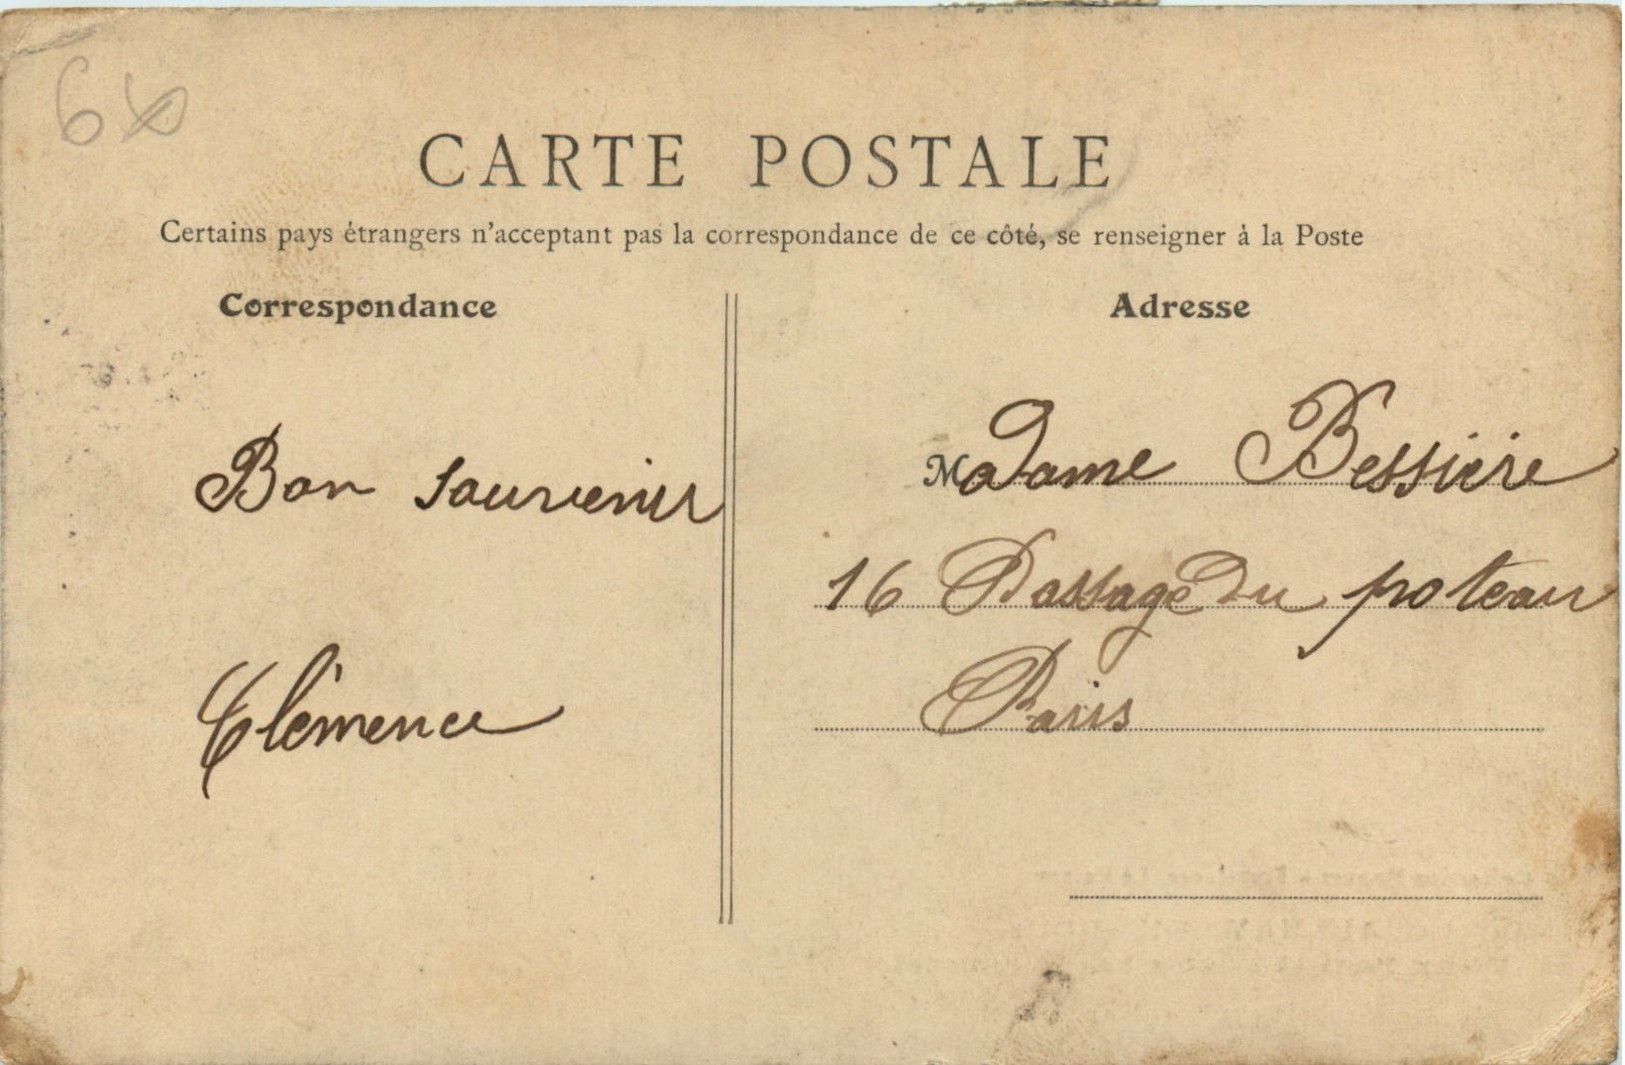 CARTE POSTALE
Certains pays étrangers n'acceptant pas la correspondance de ce côté, se renseigner à la Poste
Correspondance
Bon souvenir
Clémence
Adresse
Madame Bessière
16 Passage du poteau
Paris